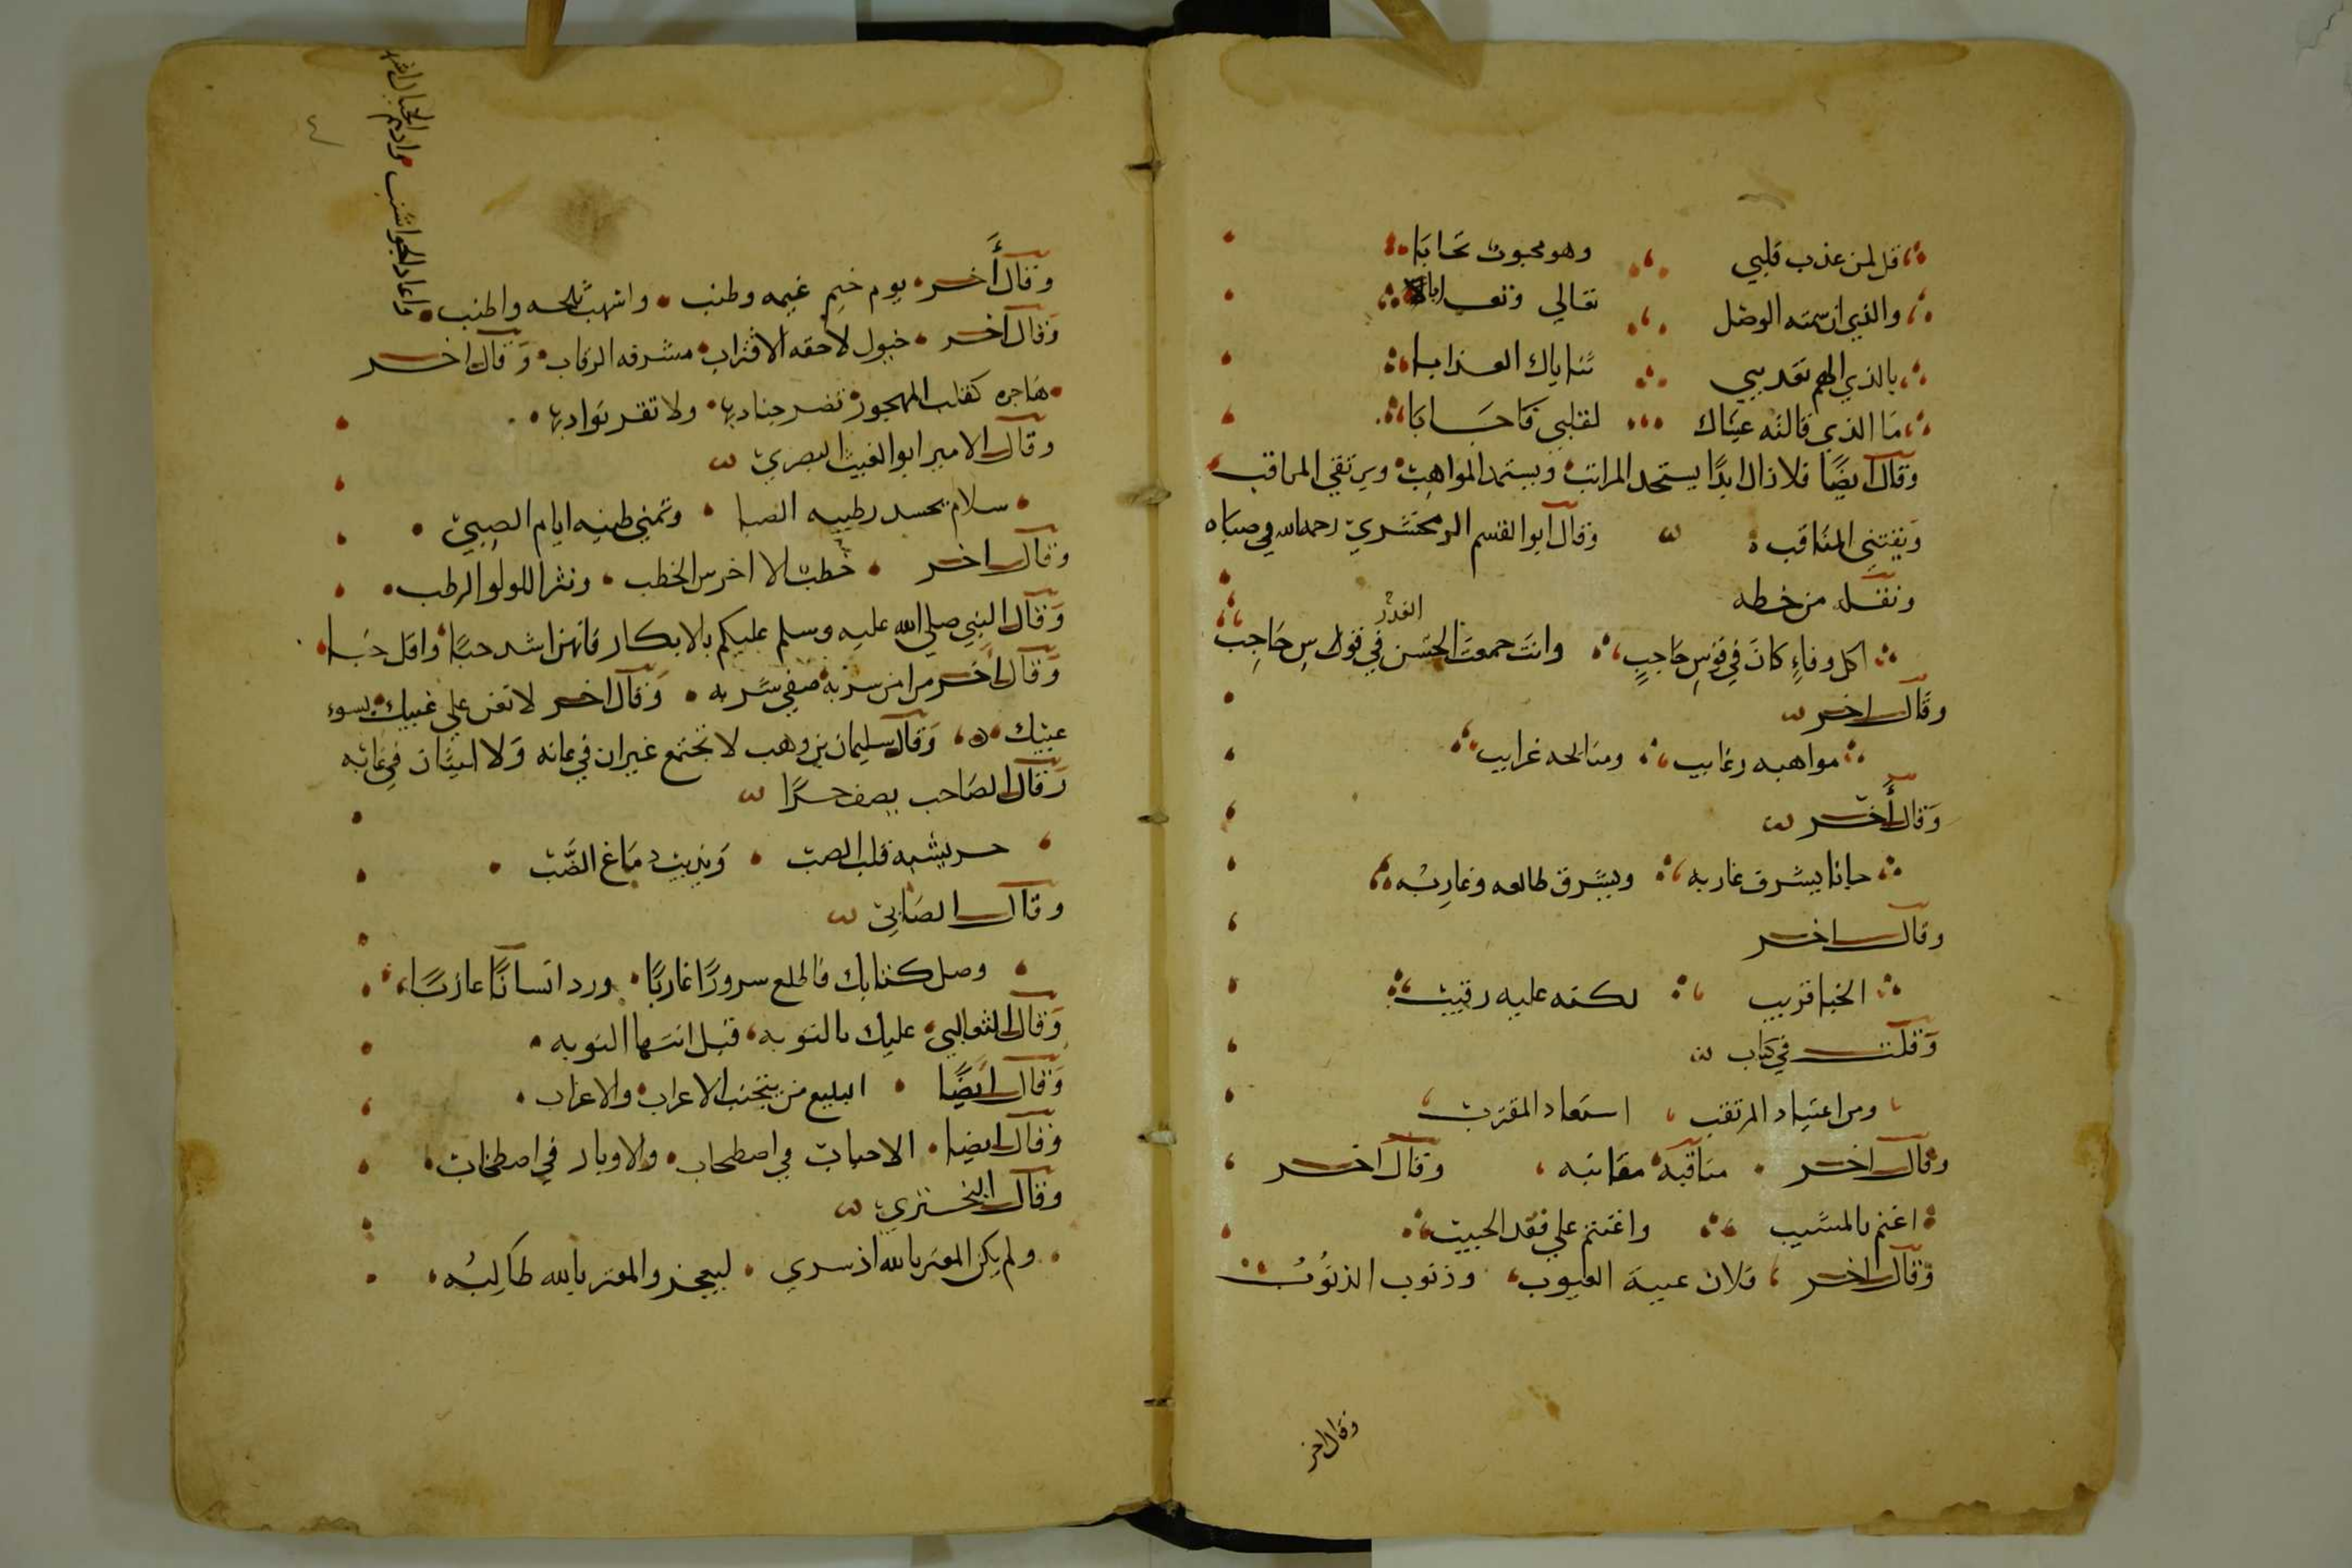 قل لمن عذب قلبي وهو محبوب تحابا
والذي ان سمته الوصل تعالي وتغابا
بالذي الهم تعذيبي ثناياك العذابا
ما الذي قالته عيناك لقلبي فاجابا
وقال ايضا فلا زال ابدا يستجد المراتب ويستمد المواهب ويرتقي المراقب
ويقتني المناقب وقال ابو القسم الزمخشري رحمه الله في صباه
ونقله من خطه
الغدر
اكل وفاء كان في قوس حاجب وانت جمعت الحسن في قوس حاجب
وقال اخر
مواهبه رغايب ومنايحه غرايب
وقال أخر
حبانا بيشرف غاربه ويشرق طالعه وغاربه
وقال اخر
الخبا قريب لكنه عليه رقيب
وقلت في كتاب
ومن اعتياد المرتقب استعاد المقترب
وقال اخر مناقبه مقانبه وقال اخر
اغتم بالمشيب واغتنم علي فقد الحبيب
وقال اخر فلان عيبة العيوب وذنوب الذنوب
وقال اخر
٤
وقال أخر يوم خيم غيمه وطنب واشهب ثلجه واطنب فاعاد الجواشب وادهم الجبال اشهب
وقال اخر خيول لاحقه الاقراب مشرفه الرقاب وقال اخر
هاجره كقلب المهجور تضر جنادبها ولا تقر نوادبها
وقال الامير ابو الغيث البصري
سلام يحسد رطيبه الصبا وتمني طيبه ايام الصبي
وقال اخر خطبت الاخرس الخطب ونثر اللولو الرطب
وقال النبي صلي الله عليه وسلم عليكم بالابكار فانهن اشد حبا واقل خبا
وقال اخر من امن سربه صفي شربه وقال اخر لا تعن علي غيبك بسوء
عيبك وقال سليمان بن وهب لا يجتمع عيران في عانه ولا ليثان في غابه
وقال الصاحب يصف حرا
حر يشبه قلب الصب ويذيب دماغ الضب
وقال الصابي
وصل كتابك فاطلع سرورا غاربا ورد انسانا عازبا
وقال الثعالبي عليك بالتوبه قبل انتها النوبه
وقال ايضا البليغ من يتجنب الاعراب والاغراب
وقال ايضا الاحباب في اصطحاب والاوتار في اصطخاب
وقال البختري
ولم يكن المعتز بالله اذ سري ليعجز والمعتز بالله طالبه